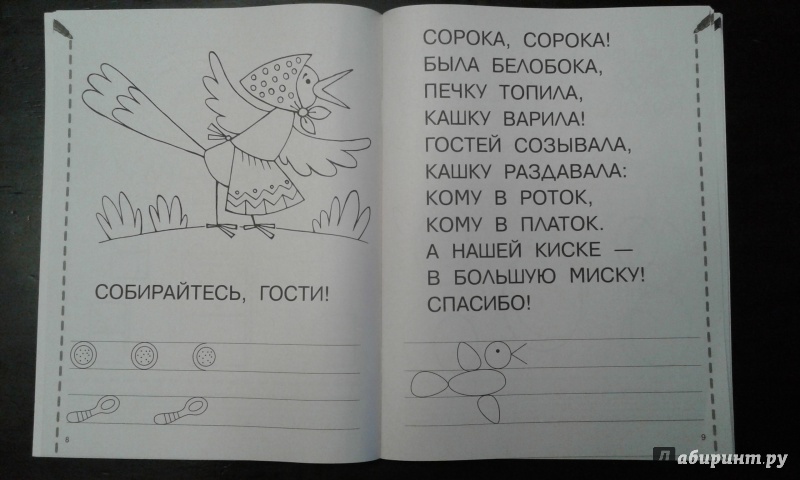 СОБИРАЙТЕСЬ, ГОСТИ!
8
СОРОКА, СОРОКА!
БЫЛА БЕЛОБОКА,
ПЕЧКУ ТОПИЛА,
КАШКУ ВАРИЛА!
ГОСТЕЙ СОЗЫВАЛА,
КАШКУ РАЗДАВАЛА:
КОМУ В РОТОК,
КОМУ В ПЛАТОК.
А НАШЕЙ КИСКЕ —
В БОЛЬШУЮ МИСКУ!
СПАСИБО!
9
Л абиринт.ру